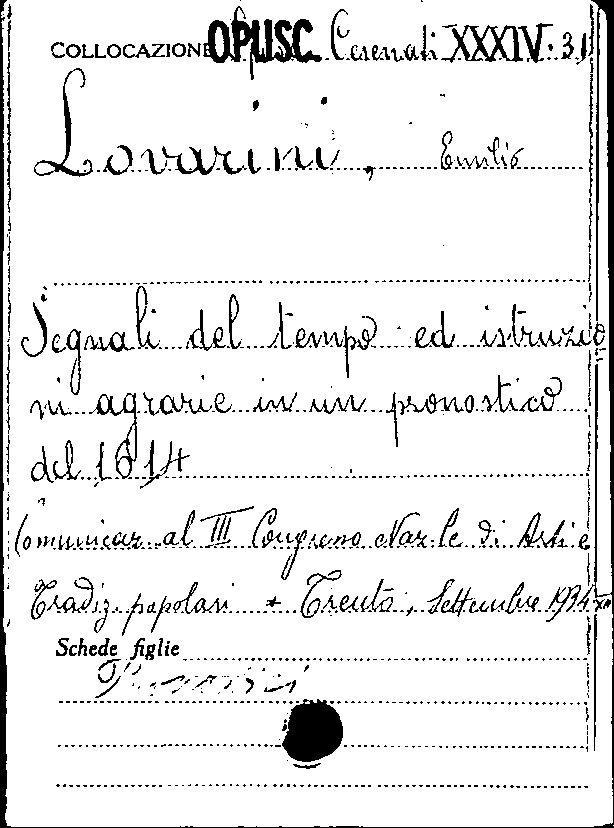 COLLOCAZIONE OPUSC. Cesenati XXXIV. 31
Lovarini, Emilio
Segnali del tempo ed istruzio
ni agrarie in un pronostico
del 1614
Comunicaz. al III Congresso Naz.le di Arti e
Tradiz. popolari - Trento, Settembre 1934 XII
Schede figlie
Pronostici